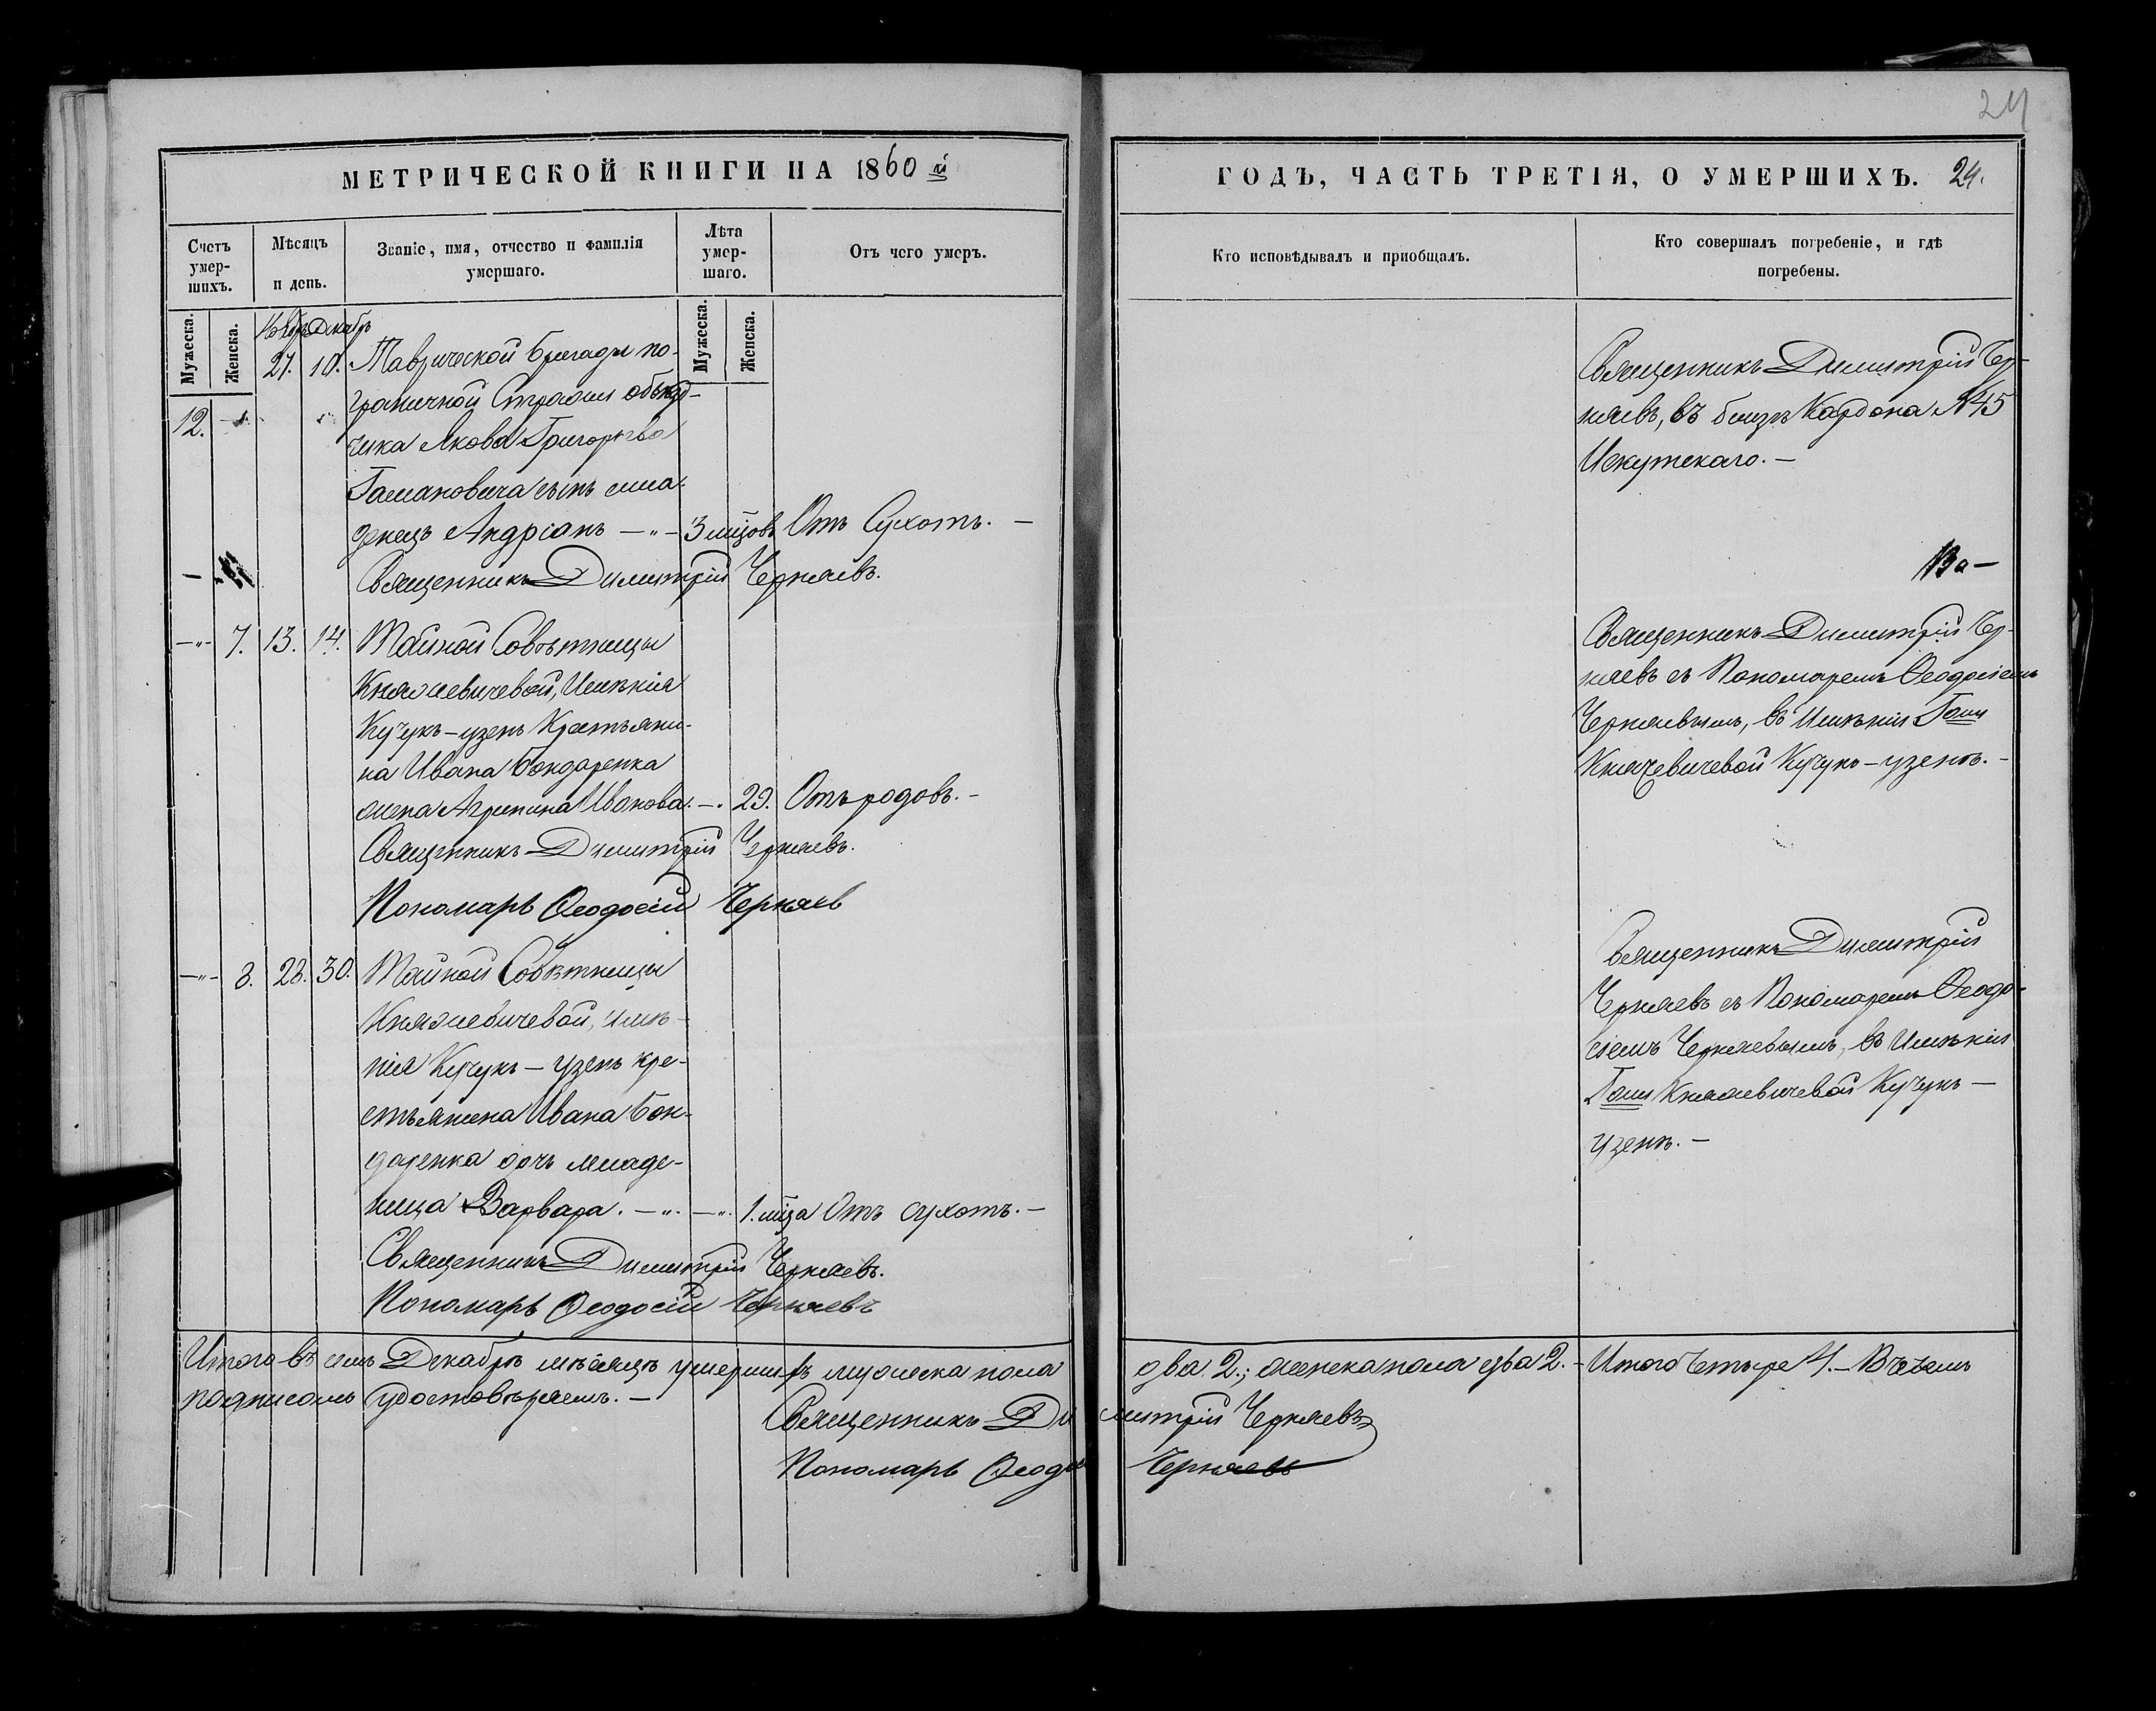 24
МЕТРИЧЕСКОЙ КНИГИ НА 1860 й
ГОДЪ, ЧАСТЬ ТРЕТІЯ, О УМЕРШИХЪ. 24.
Счетъ умер-шихъ.
Мѣсяцъ и день.
Званіе, имя, отчество и фамилія умершаго.
Лѣта умер-шаго.
Отъ чего умеръ.
Кто исповѣдывалъ и приобщалъ.
Кто совершалъ погребеніе, и гдѣ погребены.
Мужеска.
Женска.
Мужеска.
Женска.
Декабрь
27. 10. Таврической бригады по-
граничной Стражи объѣзд-
12. чика Якова Григорьева
Гамановича сынъ мла-
денецъ Андріанъ — „ — 3 мцовъ Отъ Сухотъ. —
Священникъ Димитрій Черняевъ.
Священникъ Димитрій Чер-
няевъ, въ близъ Кардона №45
Искутскаго. —
—„— 7. 13. 14. Тайной Совѣтницы
Княжевичевой, Имѣнія
Кучукъ-узень Крестьяни-
на Ивана Бондаренка
жена Агрипина Иванова. —. 29. Отъ родовъ. —
Священникъ Димитрій Черняевъ.
Пономарь Ѳеодосій Черняев
Священникъ Димитрій Чер-
няевъ съ Пономаремъ Ѳеодосіемъ
Черняевымъ, въ Имѣніи Гжи
Княжевичевой Кучукъ-узенѣ. —
—„— 8. 28. 30. Тайной Совѣтницы
Княжевичевой, имѣ-
нія Кучукъ-узень кре-
стьянина Ивана Бон-
даренка дочь младе-
ница Варвара. —„. —„. 1. мца Отъ сухотъ. —
Священникъ Димитрій Черняевъ.
Пономарь Ѳеодосій Черняевъ
Священникъ Димитрій
Черняевъ съ Пономаремъ Ѳеодо-
сіемъ Черняевымъ, въ Имѣніи
Гжи Княжевичевой Кучукъ—
узенѣ. —
Итого въ семъ Декабрѣ мѣсяцѣ умершихъ мужеска пола два 2.; женска пола два 2. — Итого Четыре 4. — В чемъ
подписомъ удостовѣряемъ. —
Священникъ Димитрій Черняевъ
Пономарь Ѳеодосій Черняевъ